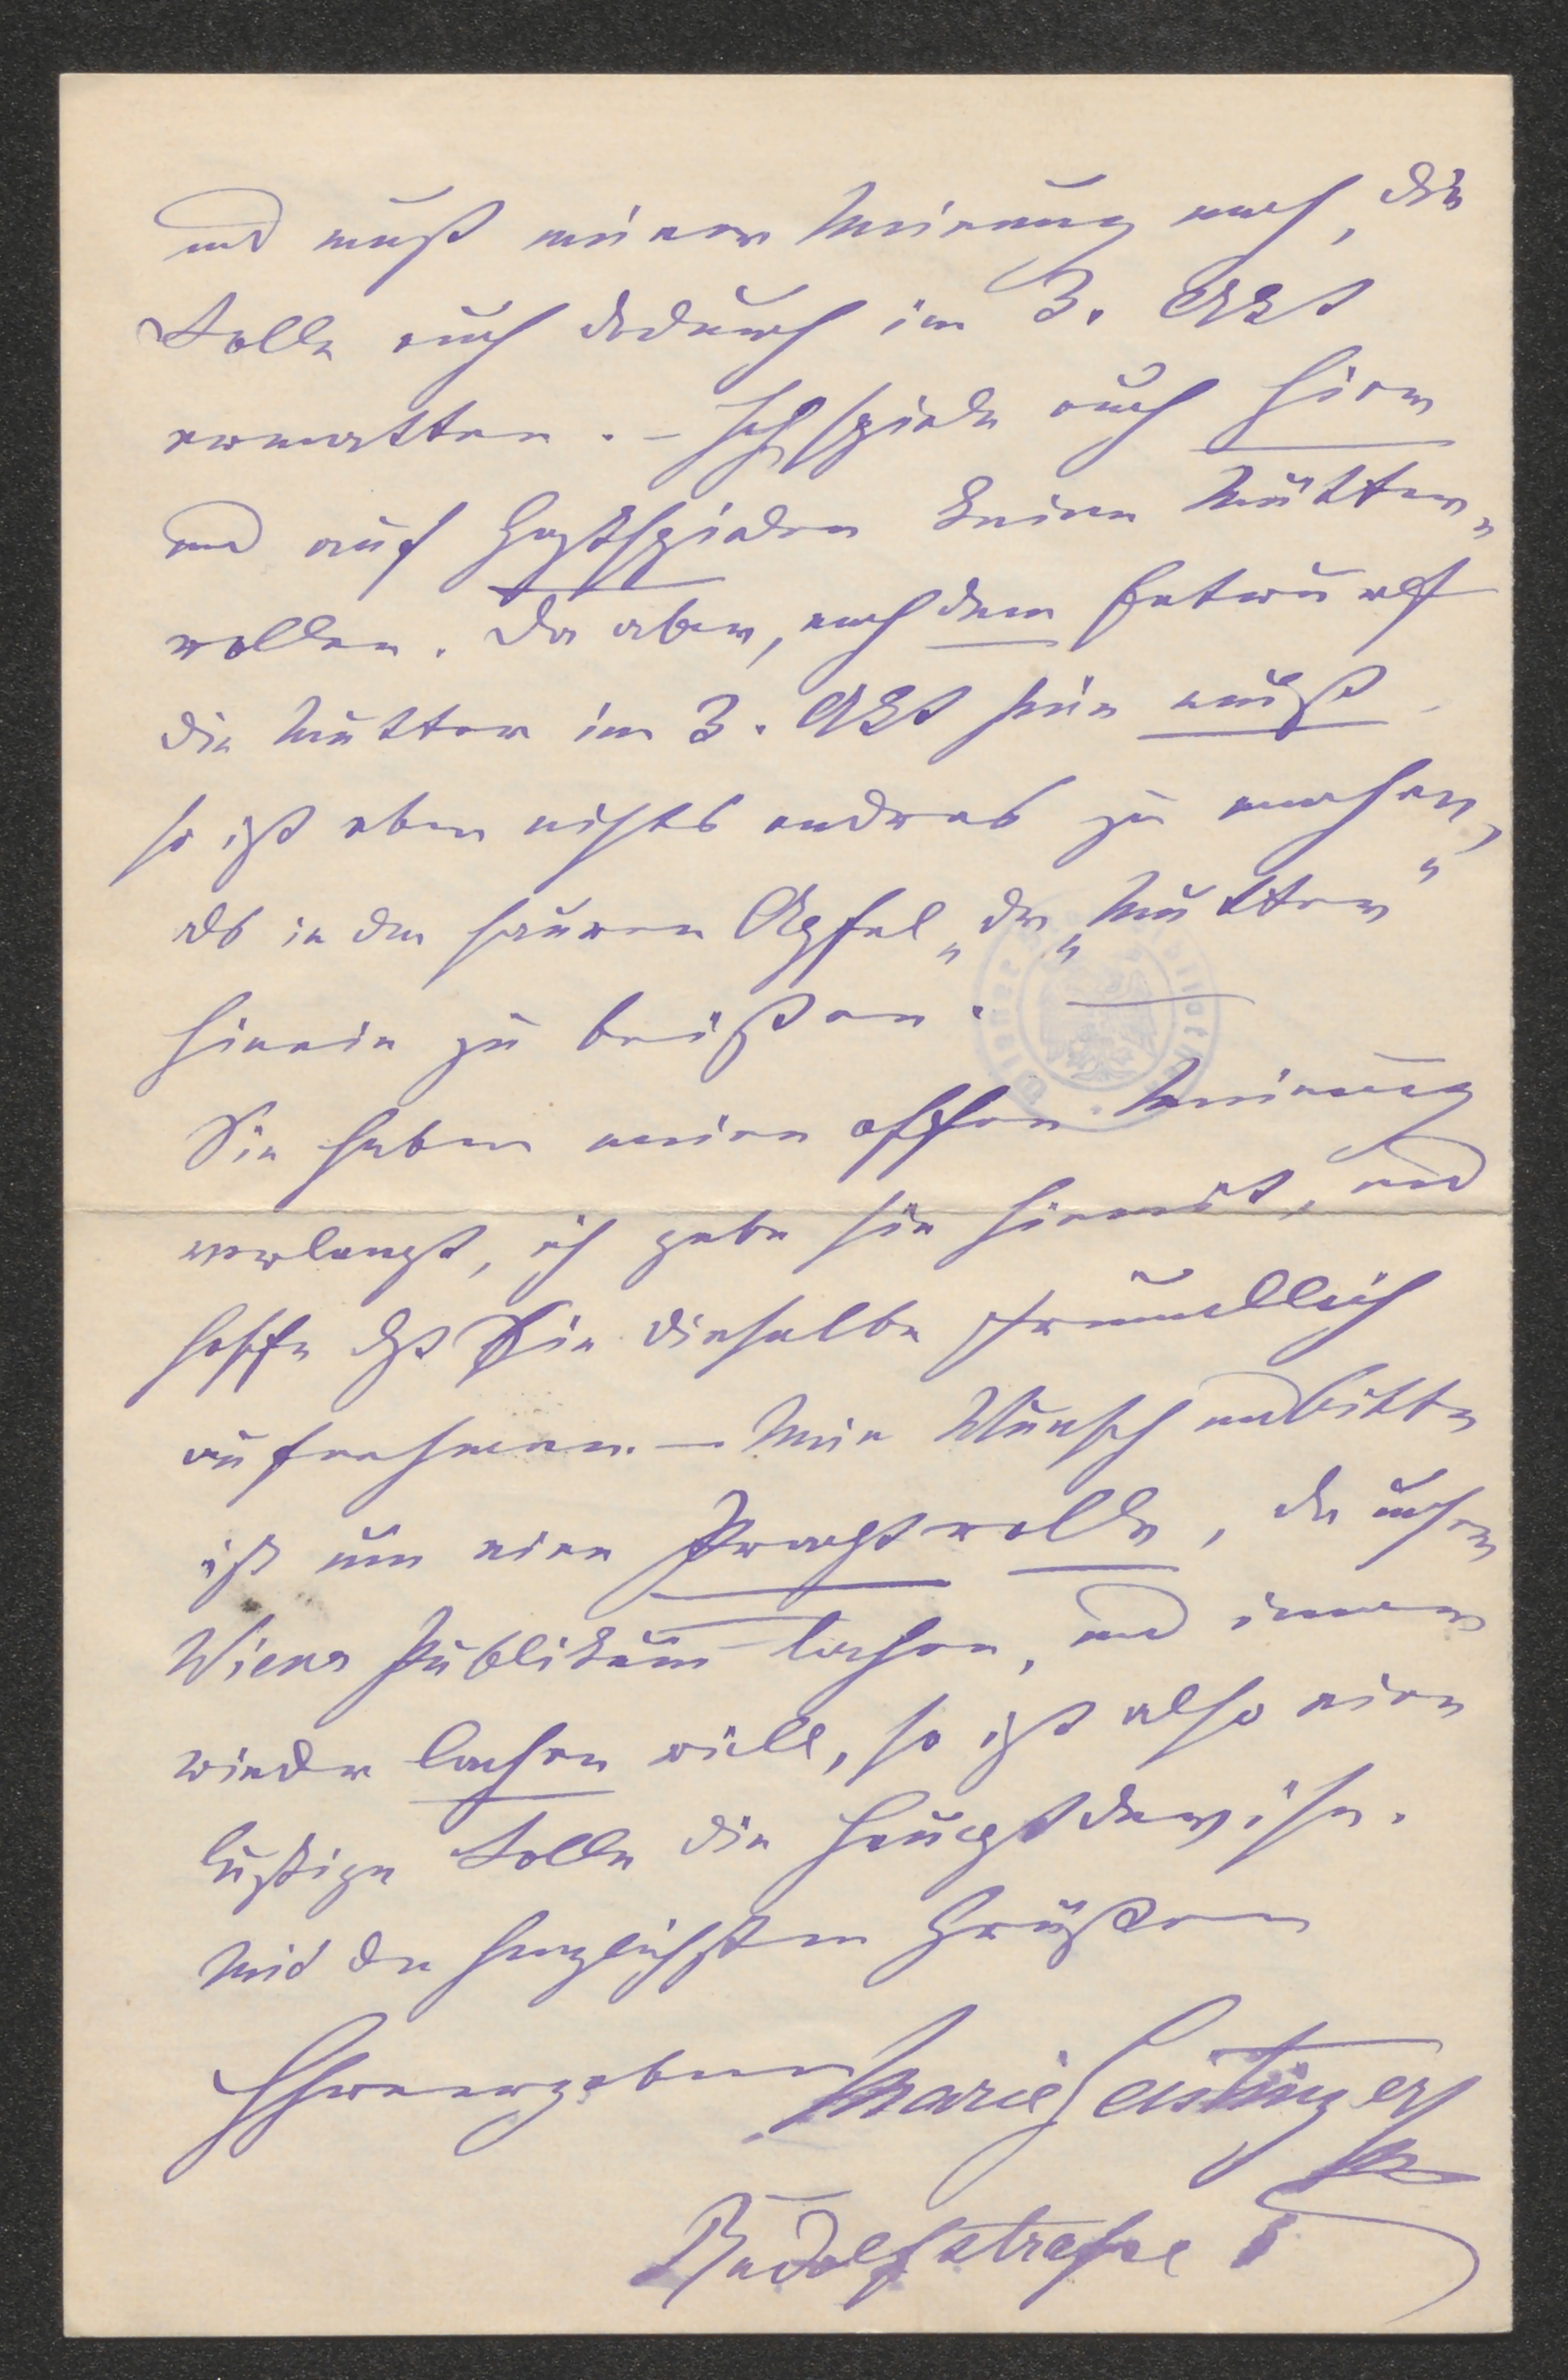 und muß meiner Meinung nach, die
Rolle auch dadurch im 3. Akt
ermatten. – Ich spiele auch hier
und auf Gastspielen keine Mütter„
rollen. Da aber, nach dem Entwurf
die Mutter im 3. Akt sein muß
so ist eben nichts andres zu machen,
als in den sauren Apfel „der „Mutter“
hinein zu beißen. —
Sie haben meine offene Meinung
verlangt, ich gebe sie hiermit, und
hoffe daß Sie dieselbe freundlich
aufnehmen. — Mein Wunsch und Bitte
ist um eine Prachtrolle, da unser
Wiener Publikum lachen, und immer
wieder lachen will, so ist also eine
lustige Rolle die Hauptdevise.
Mit den herzlichsten Grüßen
Ihre ergebene Marie Geistinger
Rudolfstrasse